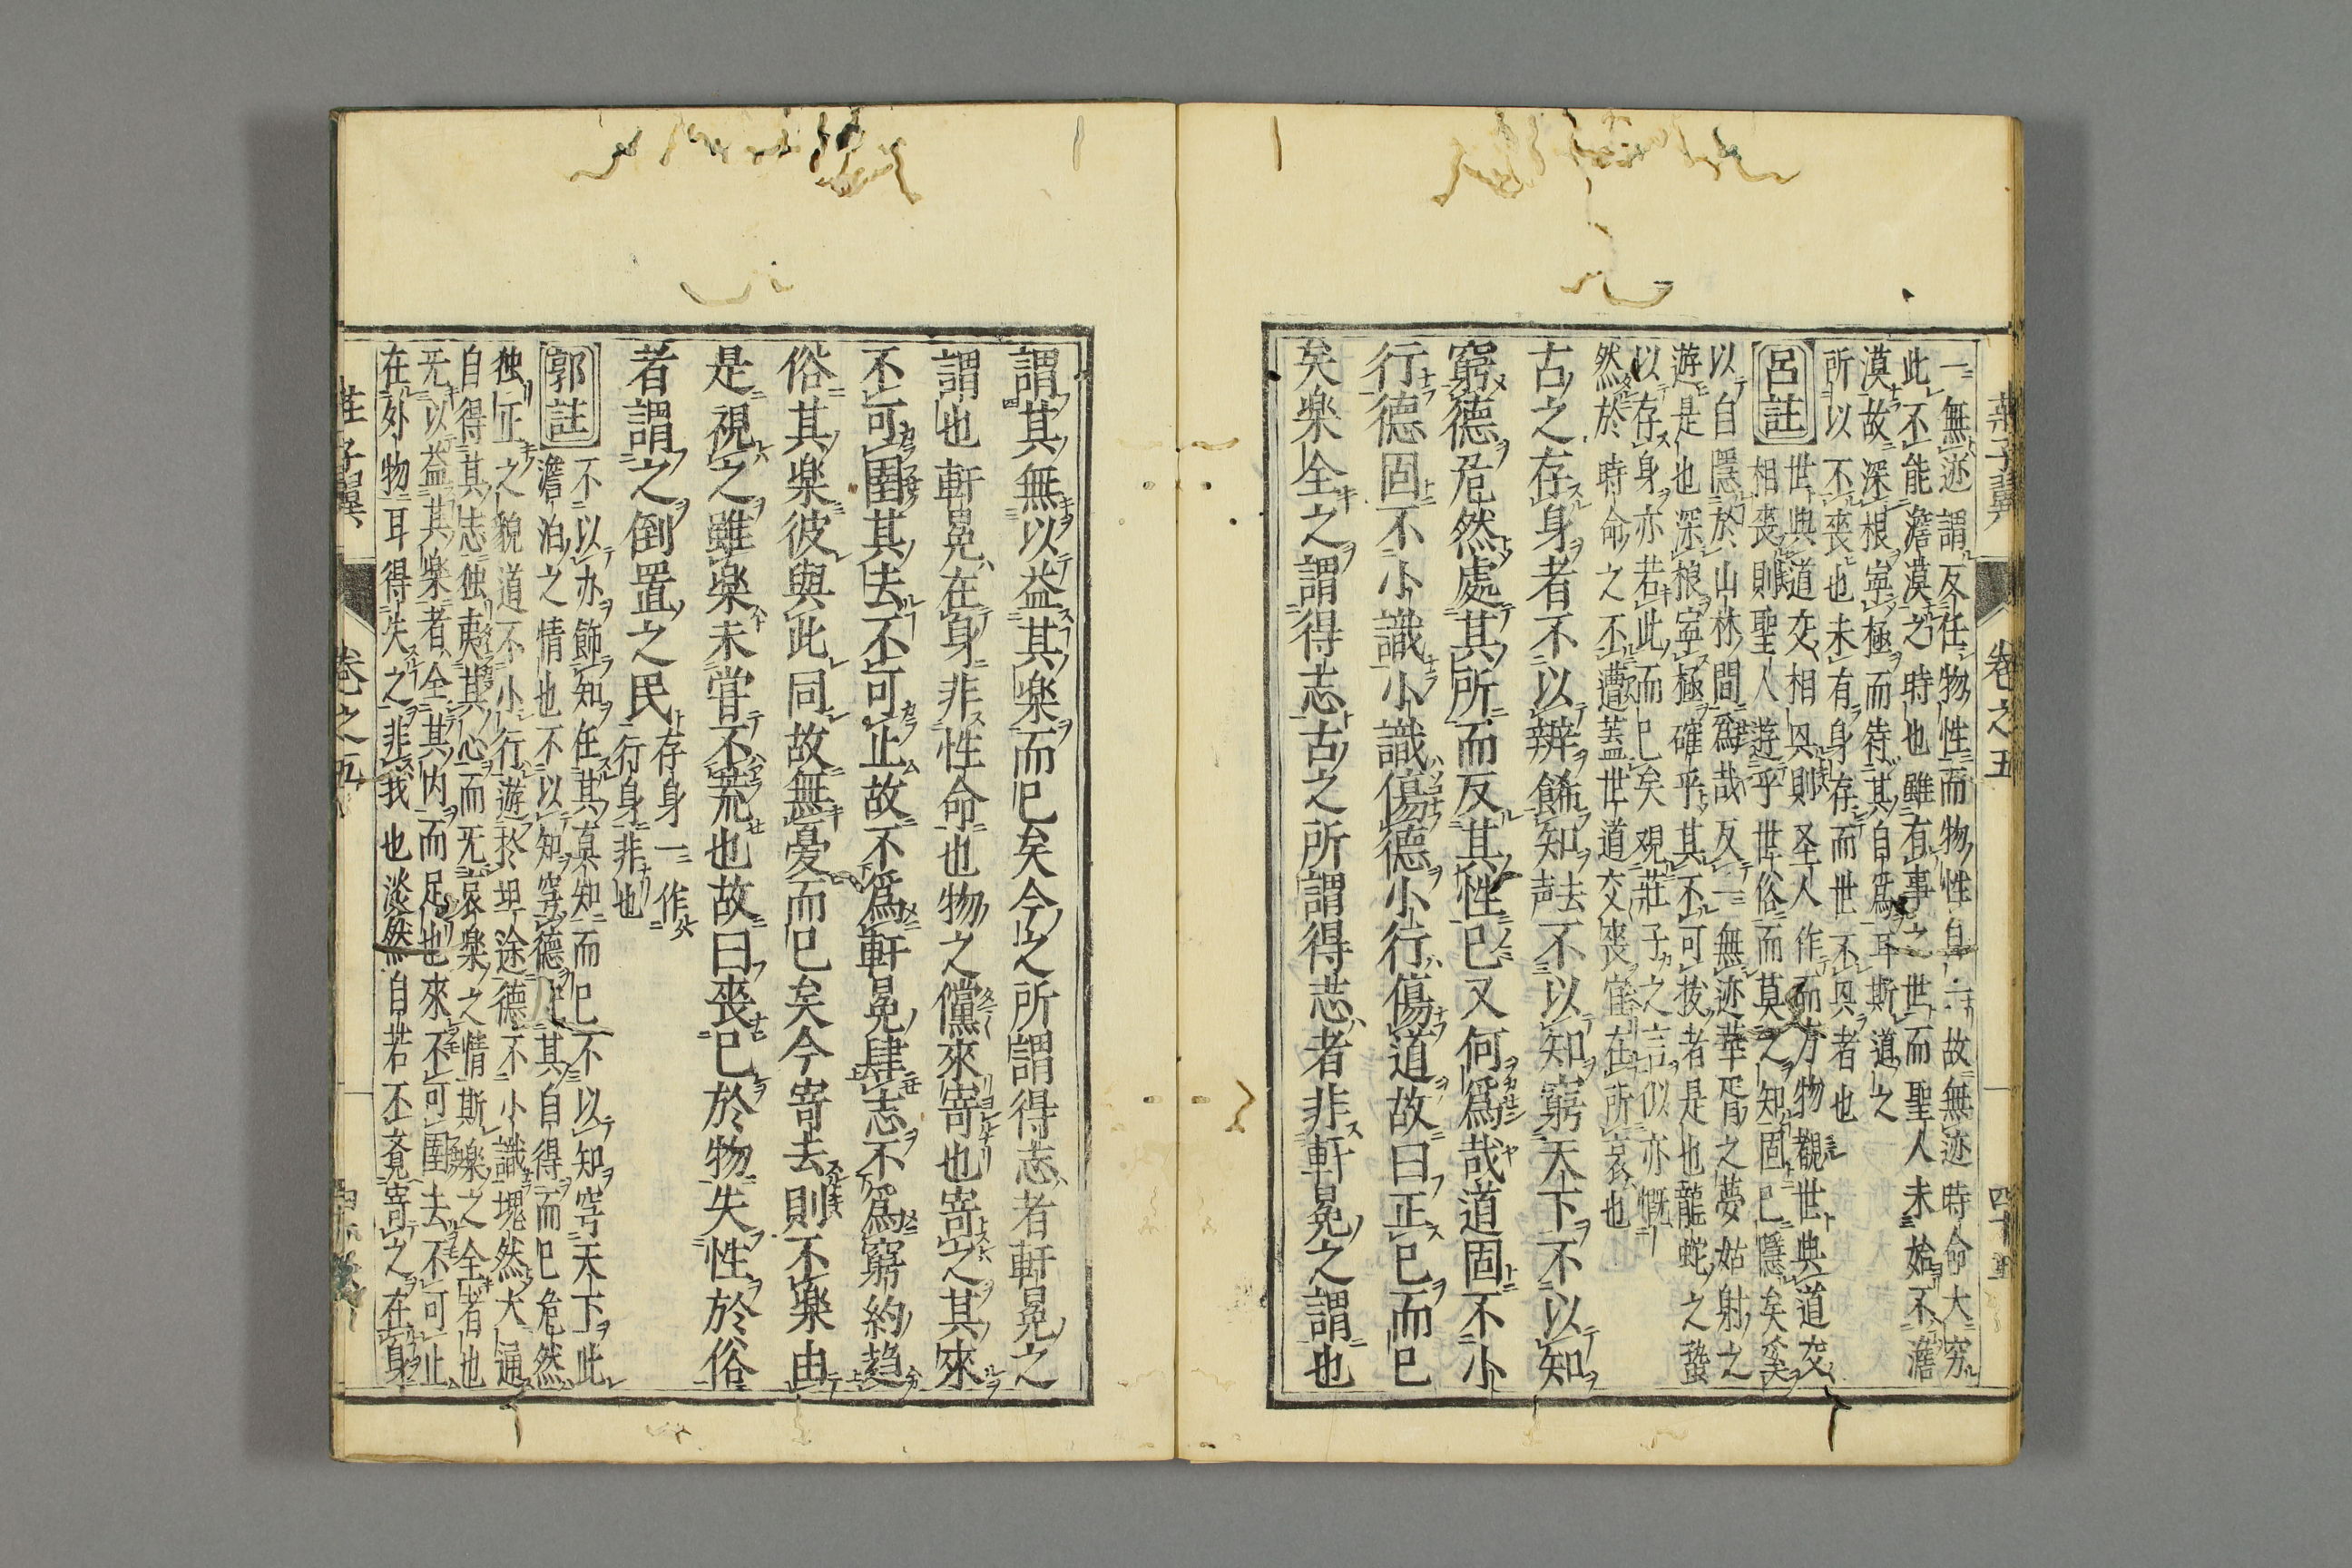 莊子翼 卷之五 四十五
一無迹謂反任物性而物性自一故無迹時命大窮
此不能澹漠之時也雖有事之世而聖人未始不澹
漠故深根寧極而待其自為耳斯道之
所以不喪也未有身存而世不與者也
呂註
世與道交相與則圣人作而万物觀世與道交
相喪則聖人遊乎世俗而莫之知固已隱矣奚
以自隱於山林間為哉反一無迹華胥之夢姑射之
遊是也深根寧極確乎其不可抜者是也龍蛇之蟄
以存身亦若此而已矣観莊子之言似亦慨
然於時命之不遭蓋世道交喪寔在所哀也
古之存身者不以辨餙知去声不以知窮天下不以知
窮德危然處其所而反其性已又何爲哉道固不小
行德固不小識小識傷德小行傷道故曰正已而已
矣楽全之謂得志古之所謂得志者非軒冕之謂也
謂其無以益其楽而已矣今之所謂得志者軒冕之
謂也軒冕在身非性命也物之儻來寄也寄之其來
不可圉其去不可止故不爲軒冕肆志不爲窮約趋
俗其楽彼與此同故無憂而已矣今寄去則不楽由
是視之雖楽未甞不荒也故曰喪已於物失性於俗
者謂之倒置之民
存身一作
行身非也
郭註
不以办餙知任其真知而已不以知穹天下此
澹泊之情也不以知穹德 其自得而已危然
独正之貌道不小行遊於坦途德不小識塊然大通
自得其志独夷其心而无哀楽之情斯楽之全者也
无以益其楽者全其内而足也來不可圉去不可止
在外物耳得失之非我也淡然自若不覺寄之在身
莊子翼 卷之五